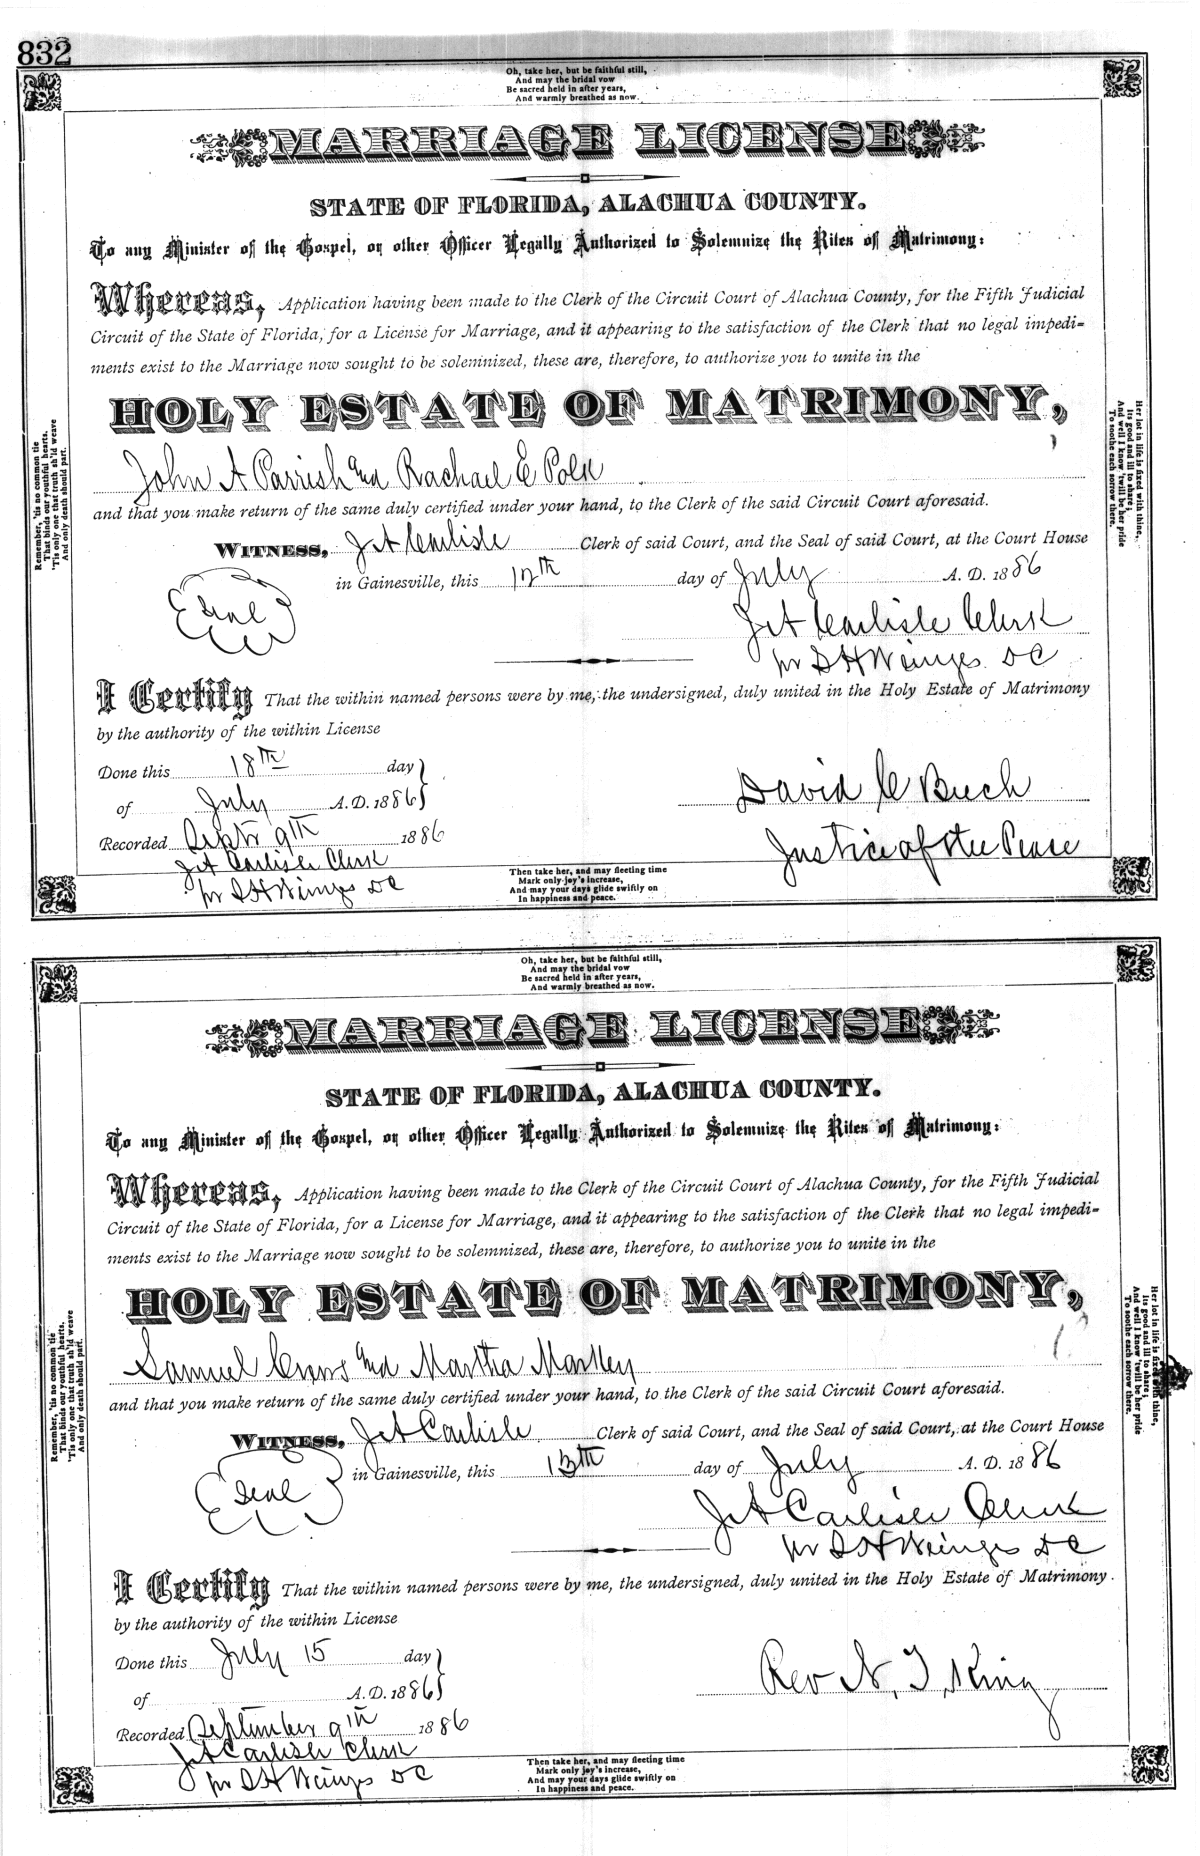 832
Oh, take her, but be faithful still,
And may the bridal vow
Be sacred held in after years,
And warmly breathed as now.
MARRIAGE LICENSE
STATE OF FLORIDA, ALACHUA COUNTY.
To any Minister of the Gospel, or other Officer Legally Authorized to Solemnize the Rites of Matrimony:
Whereas, Application having been made to the Clerk of the Circuit Court of Alachua County, for the Fifth Judicial
Circuit of the State of Florida, for a License for Marriage, and it appearing to the satisfaction of the Clerk that no legal impedi-
ments exist to the Marriage now sought to be solemnized, these are, therefore, to authorize you to unite in the
HOLY ESTATE OF MATRIMONY,
John A Parrish and Rachael E Polk
and that you make return of the same duly certified under your hand, to the Clerk of the said Circuit Court aforesaid.
WITNESS, J A Carlisle Clerk of said Court, and the Seal of said Court, at the Court House
in Gainesville, this 12th day of July A. D. 1886
Seal
J A Carlisle Clerk
pr S H Wienges DC
I Certify That the within named persons were by me, the undersigned, duly united in the Holy Estate of Matrimony
by the authority of the within License
Done this 18th day
of July A.D. 1886
Recorded Septr 9th 1886
J A Carlisle Clerk
pr S H Wienges DC
David C Buch
Justice of the Peace
Remember, 'tis no common tie
That binds our youthful hearts,
'Tis only one that truth sh'ld weave
And only death should part.
Her lot in life is fixed with thine,
its good and ill to share;
And well I know 'twill be her pride
To soothe each sorrow there.
Then take her, and may fleeting time
Mark only joy's increase,
And may your days glide swiftly on
In happiness and peace.
Oh, take her, but be faithful still,
And may the bridal vow
Be sacred held in after years,
And warmly breathed as now.
MARRIAGE LICENSE
STATE OF FLORIDA, ALACHUA COUNTY.
To any Minister of the Gospel, or other Officer Legally Authorized to Solemnize the Rites of Matrimony:
Whereas, Application having been made to the Clerk of the Circuit Court of Alachua County, for the Fifth Judicial
Circuit of the State of Florida, for a License for Marriage, and it appearing to the satisfaction of the Clerk that no legal impedi-
ments exist to the Marriage now sought to be solemnized, these are, therefore, to authorize you to unite in the
HOLY ESTATE OF MATRIMONY,
Samuel Evans and Martha Markey
and that you make return of the same duly certified under your hand, to the Clerk of the said Circuit Court aforesaid.
WITNESS, J A Carlisle Clerk of said Court, and the Seal of said Court, at the Court House
in Gainesville, this 13th day of July A. D. 1886
Seal
J A Carlisle Clerk
pr S H Wienges DC
I Certify That the within named persons were by me, the undersigned, duly united in the Holy Estate of Matrimony.
by the authority of the within License
Done this July 15 day
of A.D. 1886
Recorded September 9th 1886
J A Carlisle Clerk
pr S H Wienges DC
Rev N. T. King
Remember, 'tis no common tie
That binds our youthful hearts,
'Tis only one that truth sh'ld weave
And only death should part.
Her lot in life is fixed with thine,
its good and ill to share;
And well I know 'twill be her pride
To soothe each sorrow there.
Then take her, and may fleeting time
Mark only joy's increase,
And may your days glide swiftly on
In happiness and peace.